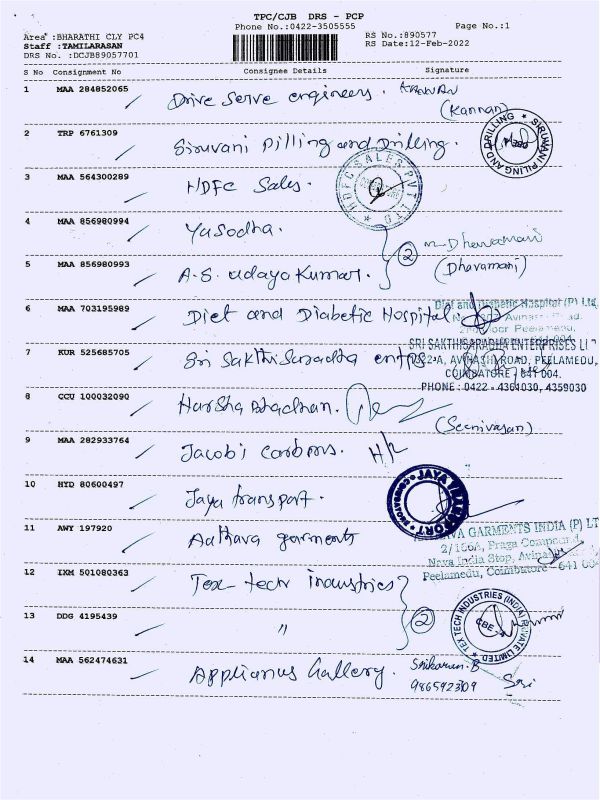 TPC/CJB DRS - PCP
Phone No.:0422-3505555
Page No.:1
Area :BHARATHI CLY PC4
Staff :TAMILARASAN
DRS No. :DCJB89057701
RS No.:890577
RS Date:12-Feb-2022
S No Consignment No Consignee Details Signature
1 MAA 284852065 Drive Serve engineers.
(Kannan)
2 TRP 6761309 Siruvani Pilling and Drilling.
SIRUVANI PILING AND DRILLING
3 MAA 564300289 HDFC Sales.
HDFC SALES PVT LTD
4 MAA 856980994 Yasodha.
2
5 MAA 856980993 A.S. Udaya Kumar.
(Dhavamani)
6 MAA 703195989 Diet and Diabetic Hospital
Diet and Diabetic Hospital (P) Ltd
7 KUR 525685705 Sri Sakthi Saradha
SRI SAKTHISARADHA ENTERPRISES
AVINASHI ROAD, PEELAMEDU,
COIMBATORE - 641 004.
PHONE : 0422 - 4361030, 4359030
8 CCU 100032090 Harsha
(Seenivasan)
9 MAA 282933764 Jacobi Carbons.
10 HYD 80600497 Jaya transport.
JAYA TRANSPORT
11 AWY 197920 garments
GARMENTS INDIA (P) LT
2/166A, Praga Compound,
Nava India Stop,
Peelamedu, Coimbatore - 641 004
12 IXM 501080363 Tex tech industries
13 DDG 4195439 "
2
TEX TECH INDUSTRIES (INDIA) PRIVATE LIMITED
CBE
14 MAA 562474631 Gallery.
9865923109
Sri